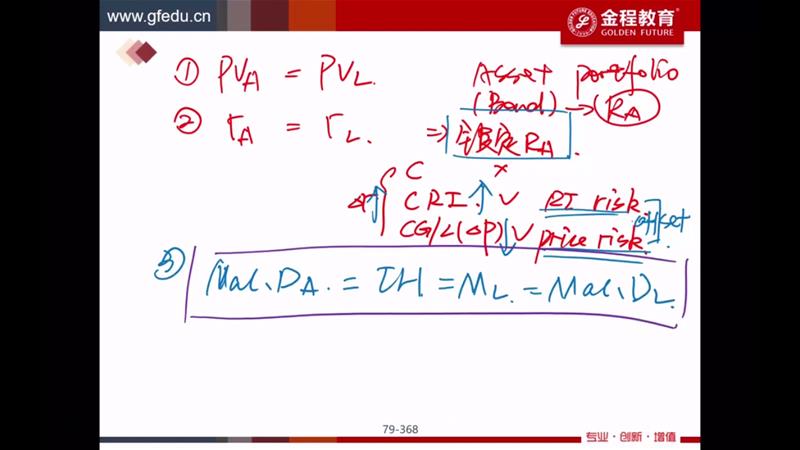 www.gfedu.cn
金程教育
GOLDEN FUTURE
① PV_A = PV_L.
Asset portfolio
(Bond) → R_A
② r_A = r_L. ⇒ 锁定 R_A.
C ×
Δr↑ CRI ↑ ∨ RI risk
offset
CG/L(ΔP)↓ ∨ price risk
③ Mac.D_A. = IH = M_L. = Mac.D_L.
79-368
专业·创新·增值